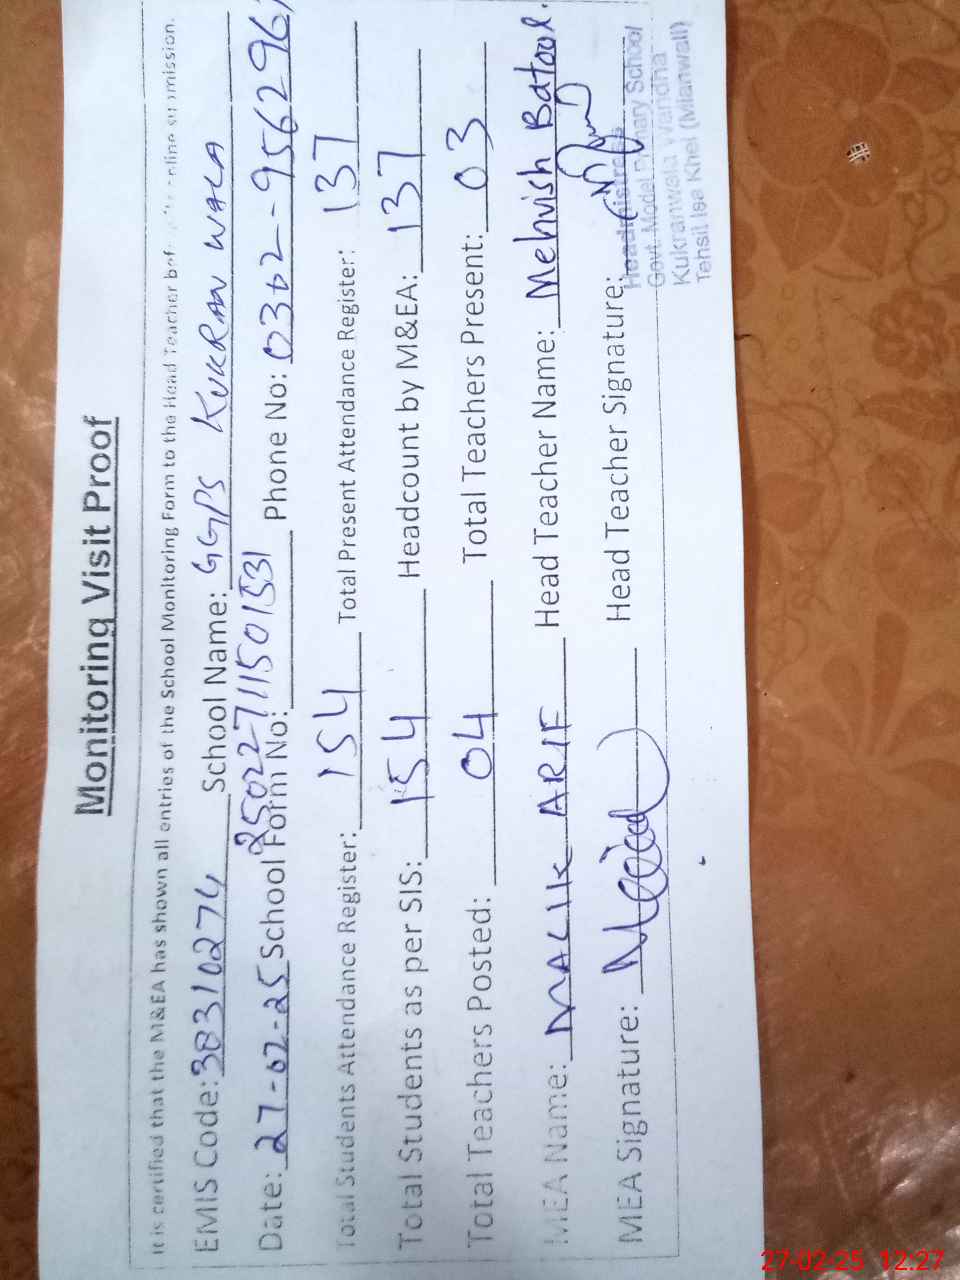 Monitoring Visit Proof
It is certified that the M&EA has shown all entries of the School Monitoring Form to the Head Teacher before online submission.
EMIS Code: 38310274 School Name: GGPS KUKRAN WALA
Date: 27-02-25 School Form No: 25022711501531 Phone No: 0302-9562296
Total Students Attendance Register: 154 Total Present Attendance Register: 137
Total Students as per SIS: 154 Headcount by M&EA: 137
Total Teachers Posted: 04 Total Teachers Present: 03
MEA Name: MALIK ARIF Head Teacher Name: Mehvish Batool.
MEA Signature: Head Teacher Signature:
Headmistress
Govt. Model Primary School
Kukranwala Vandha
Tehsil Isa Khel (Mianwali)
27-02-25 12:27